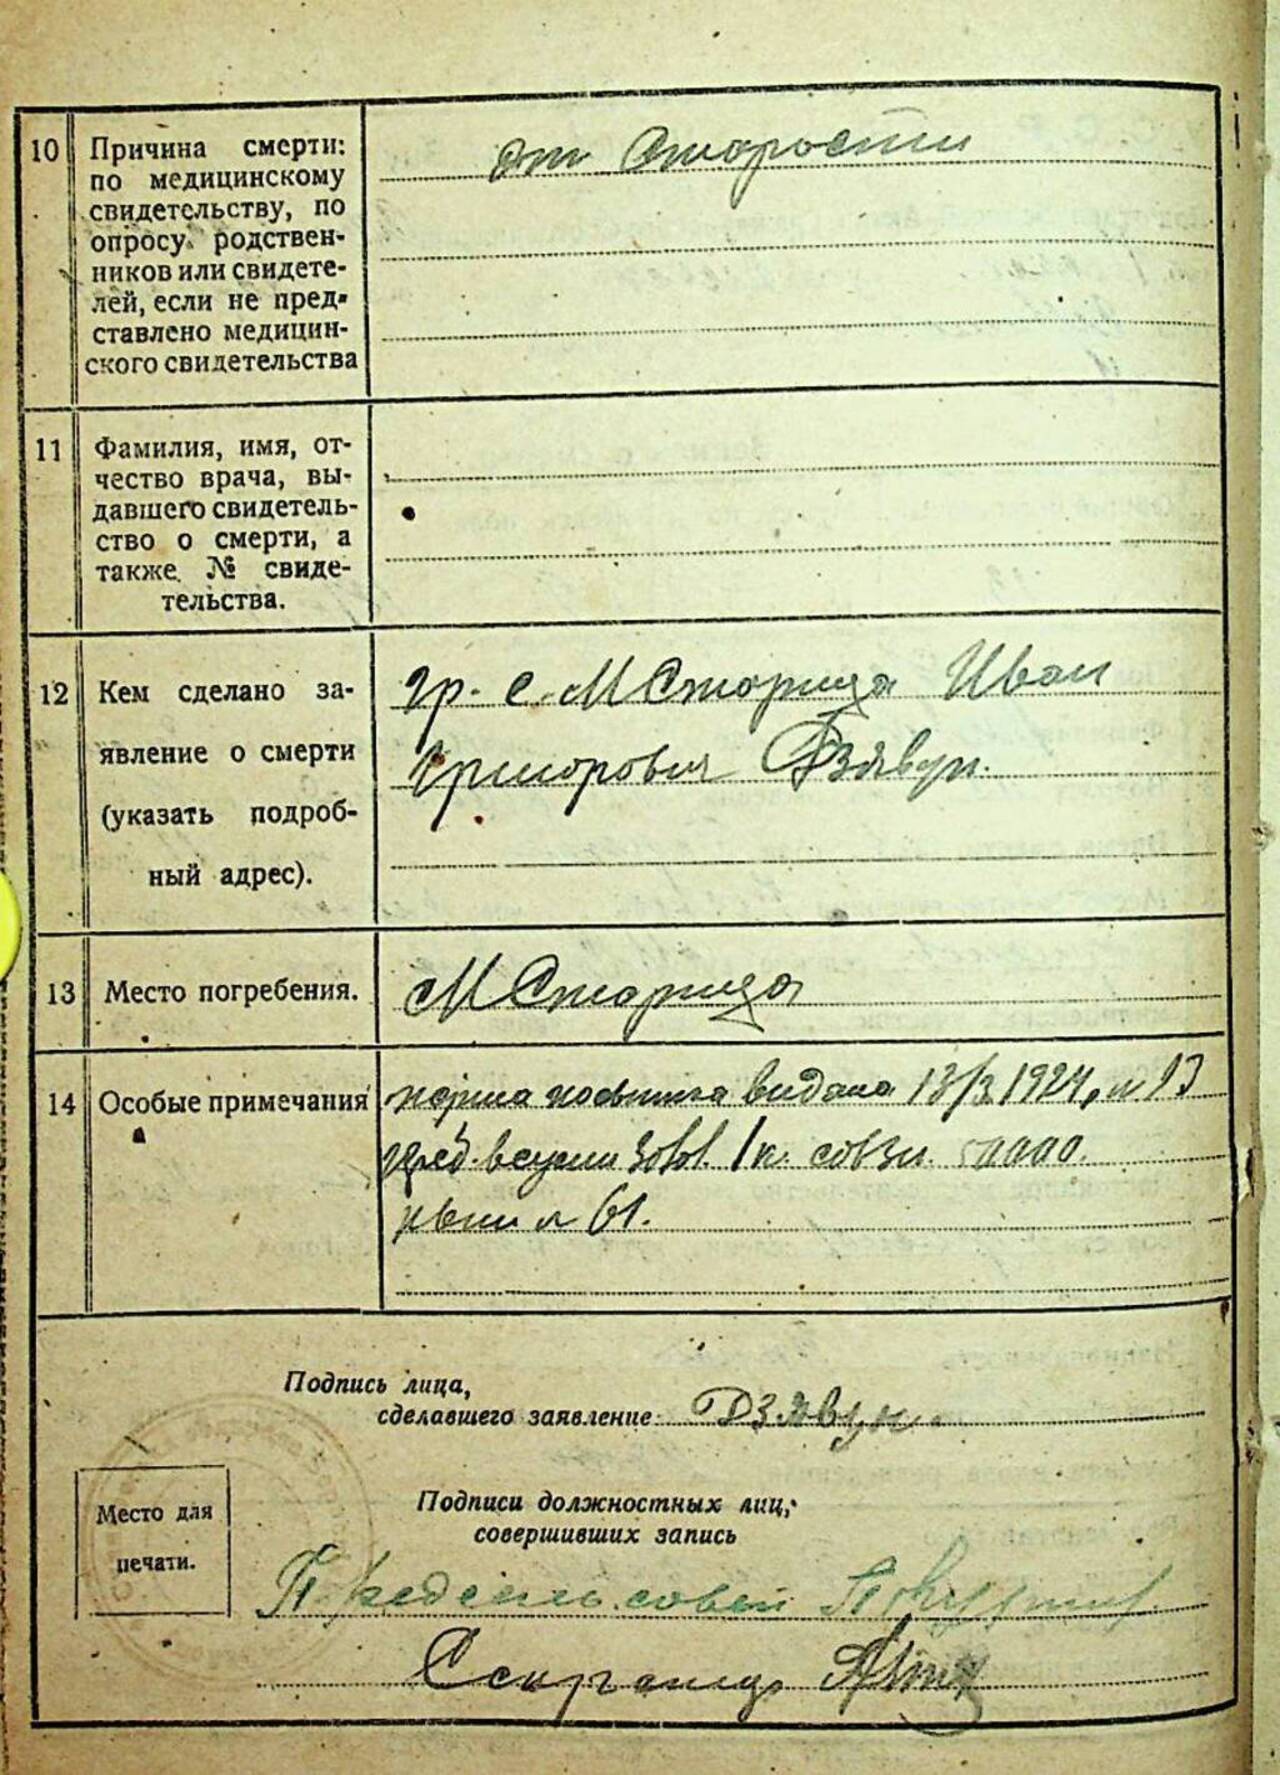 10 Причина смерти:
по медицинскому
свидетельству, по
опросу родствен-
ников или свидете-
лей, если не пред-
ставлено медицин-
ского свидетельства
от Старости
11 Фамилия, имя, от-
чество врача, вы-
давшего свидетель-
ство о смерти, а
также № свиде-
тельства.
12 Кем сделано за-
явление о смерти
(указать подроб-
ный адрес).
гр. с. М Сторица Иван
Григорович Дзявун.
13 Место погребения.
с М Сторица
14 Особые примечания
видана 13/3 1924,
61.
Подпись лица,
сделавшего заявление: Дзявун.
Место для
печати.
Подписи должностных лиц,
совершивших запись
Пред сель. совета
Секретарь